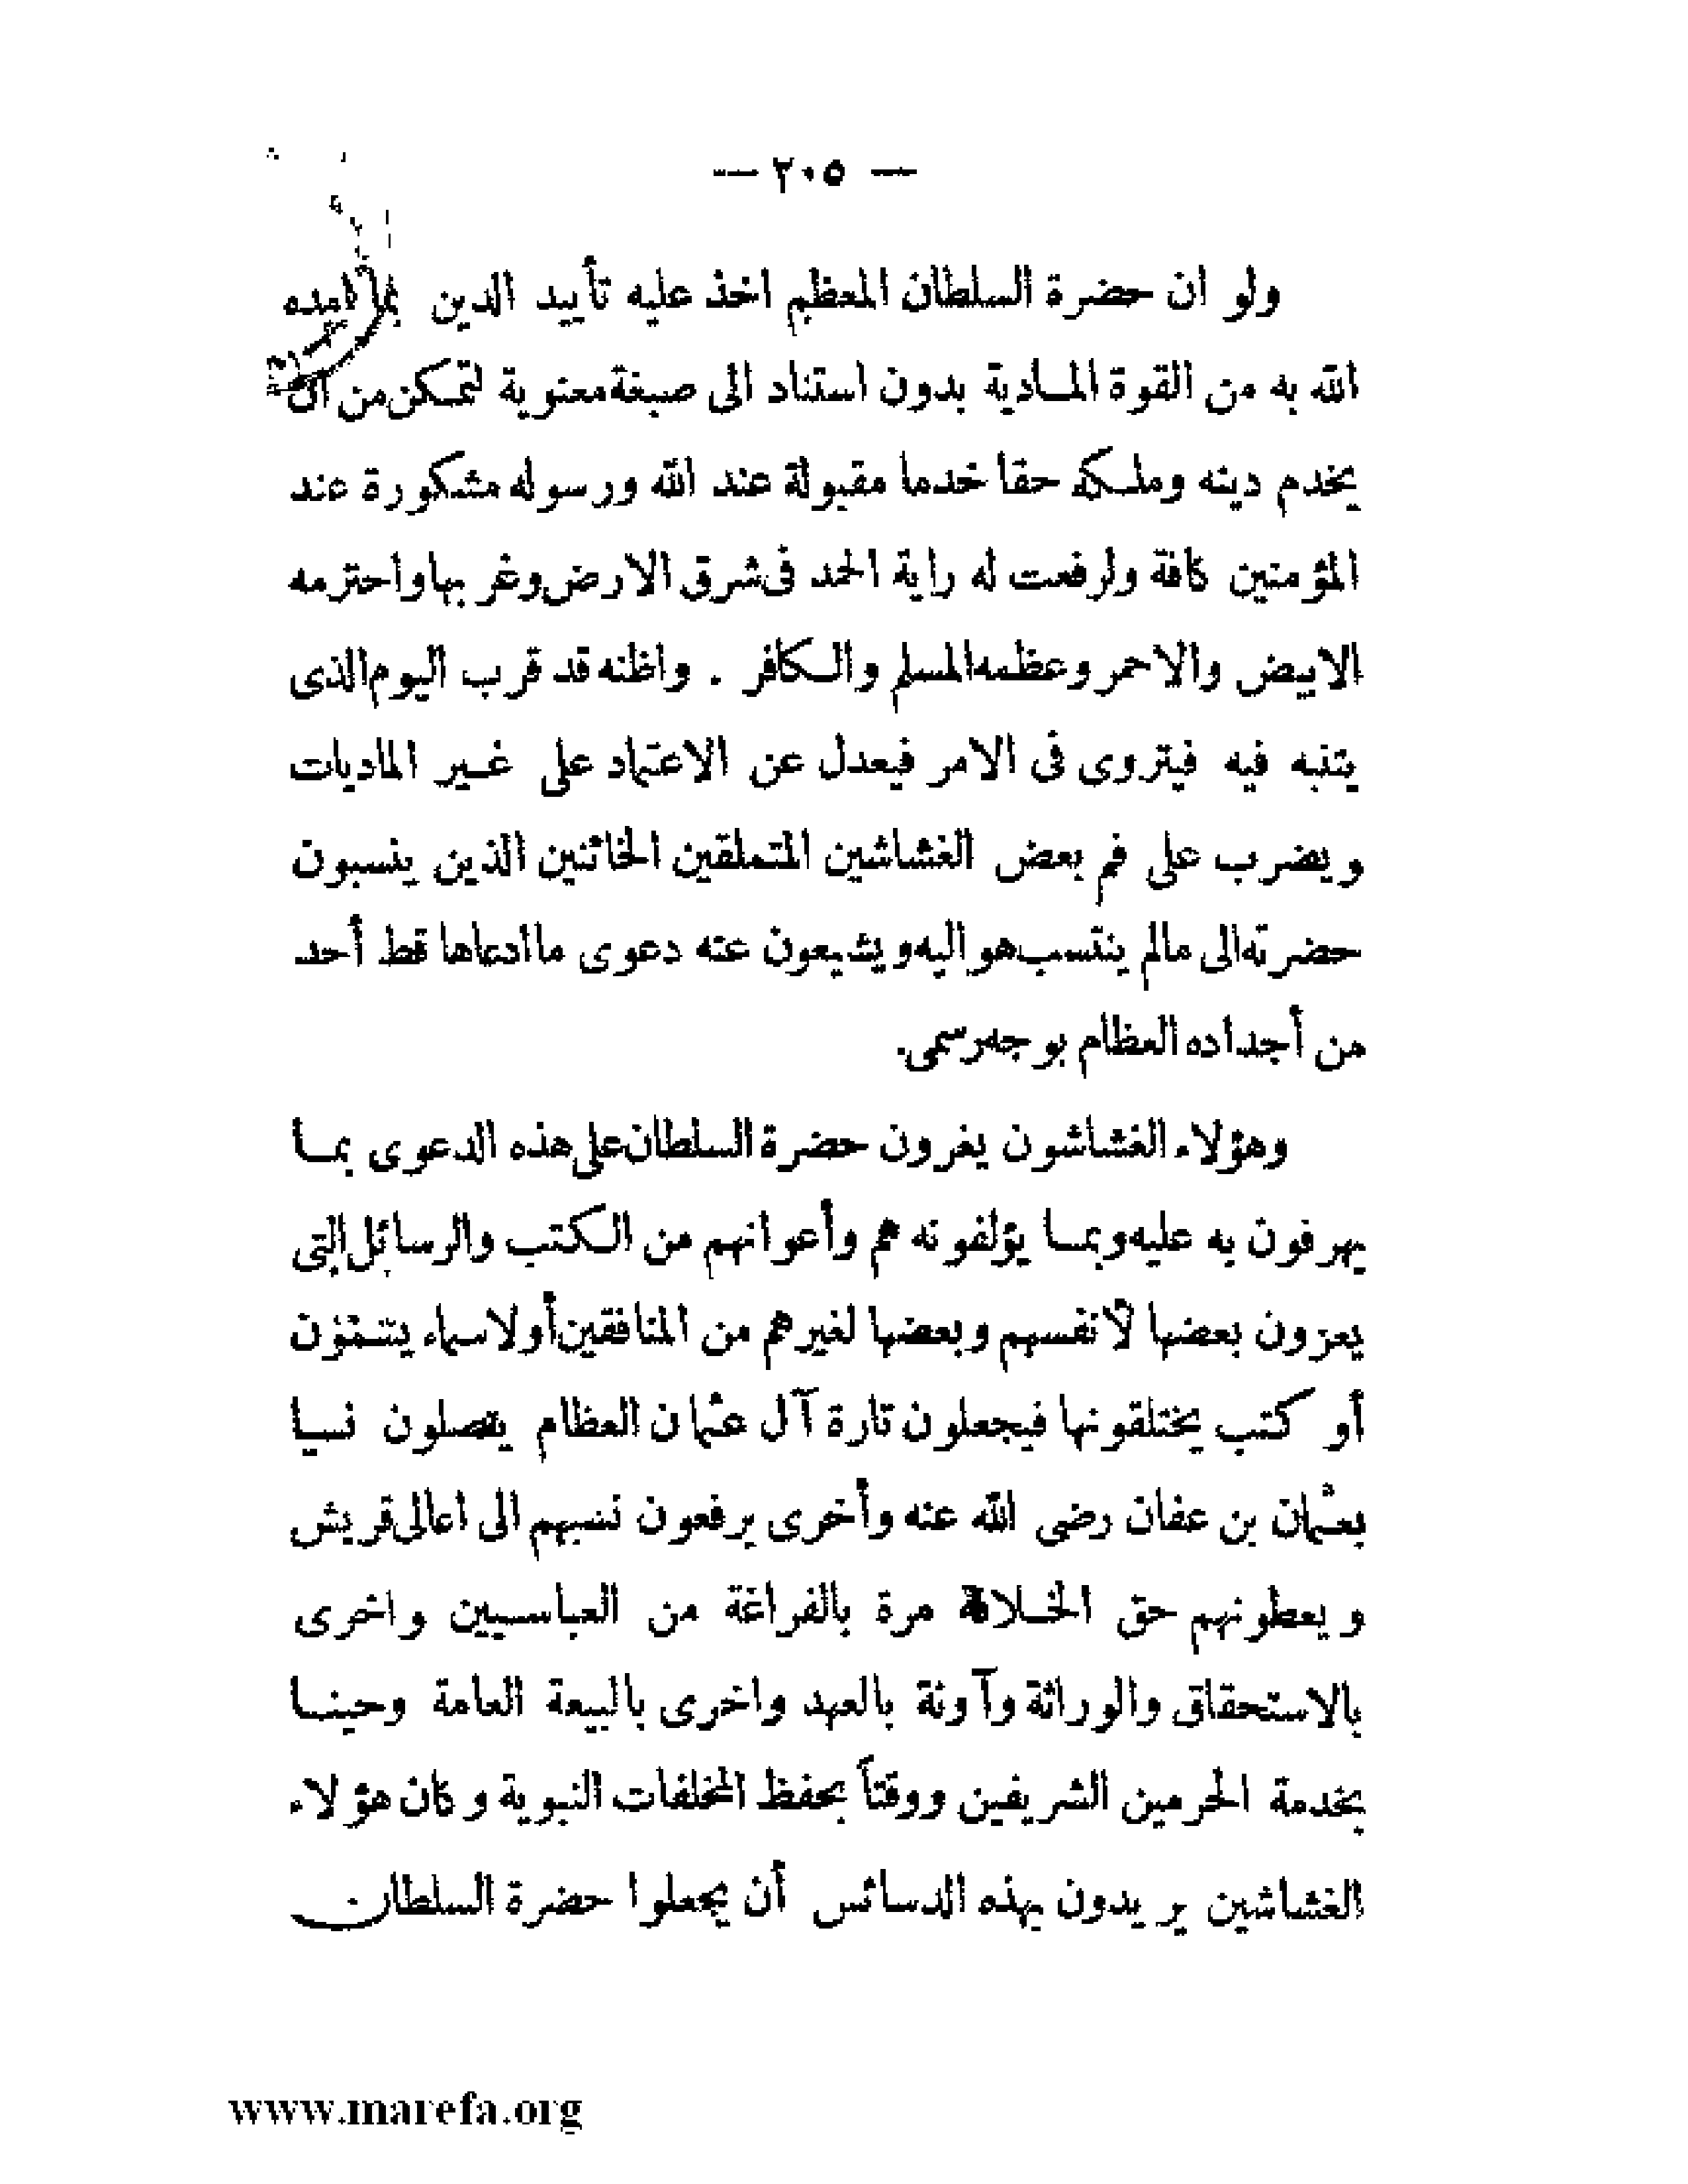 — ٢٠٥ —
ولو ان حضرة السلطان المعظم اخذ عليه تأييد الدين بما امده
الله به من القوة المادية بدون استناد الى صبغة معنوية لتمكن من ان
يخدم دينه وملكه حقا خدما مقبولة عند الله ورسوله مشكورة عند
المؤمنين كافة ولرفعت له راية الحمد فى شرق الارض وغربها واحترمه
الابيض والاحمر وعظمه المسلم والكافر . واظنه قد قرب اليوم الذى
يتنبه فيه فيتروى فى الامر فيعدل عن الاعتماد على غير الماديات
ويضرب على فم بعض الغشاشين المتملقين الخائنين الذين ينسبون
حضرته الى مالم ينتسب هو اليه ويشيعون عنه دعوى ما ادعاها قط أحد
من أجداده العظام بوجه رسمى.
وهؤلاء الغشاشون يغرون حضرة السلطان على هذه الدعوى بما
يهرفون به عليه وبما يؤلفونه هم وأعوانهم من الكتب والرسائل التى
يعزون بعضها لأنفسهم وبعضها لغيرهم من المنافقين أو لاسماء يتسمون
أو كتب يختلقونها فيجعلون تارة آل عثمان العظام يتصلون نسبا
بعثمان بن عفان رضى الله عنه وأخرى يرفعون نسبهم الى اعالى قريش
ويعطونهم حق الخلافة مرة بالفراغة من العباسيين واخرى
بالاستحقاق والوراثة وآونة بالعهد واخرى بالبيعة العامة وحينا
بخدمة الحرمين الشريفين ووقتاً بحفظ المخلفات النبوية وكان هؤلاء
الغشاشين يريدون بهذه الدسائس أن يجعلوا حضرة السلطان
www.marefa.org